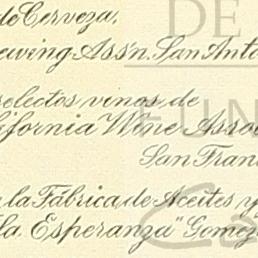 de Cerveza,
ewing Ass'n. San Anto
DE
selectos vinos de
lifornia Wine Assoc
FUN
San Fran
y la Fábrica de Aceites y
"La Esperanza" Gomez
Ca